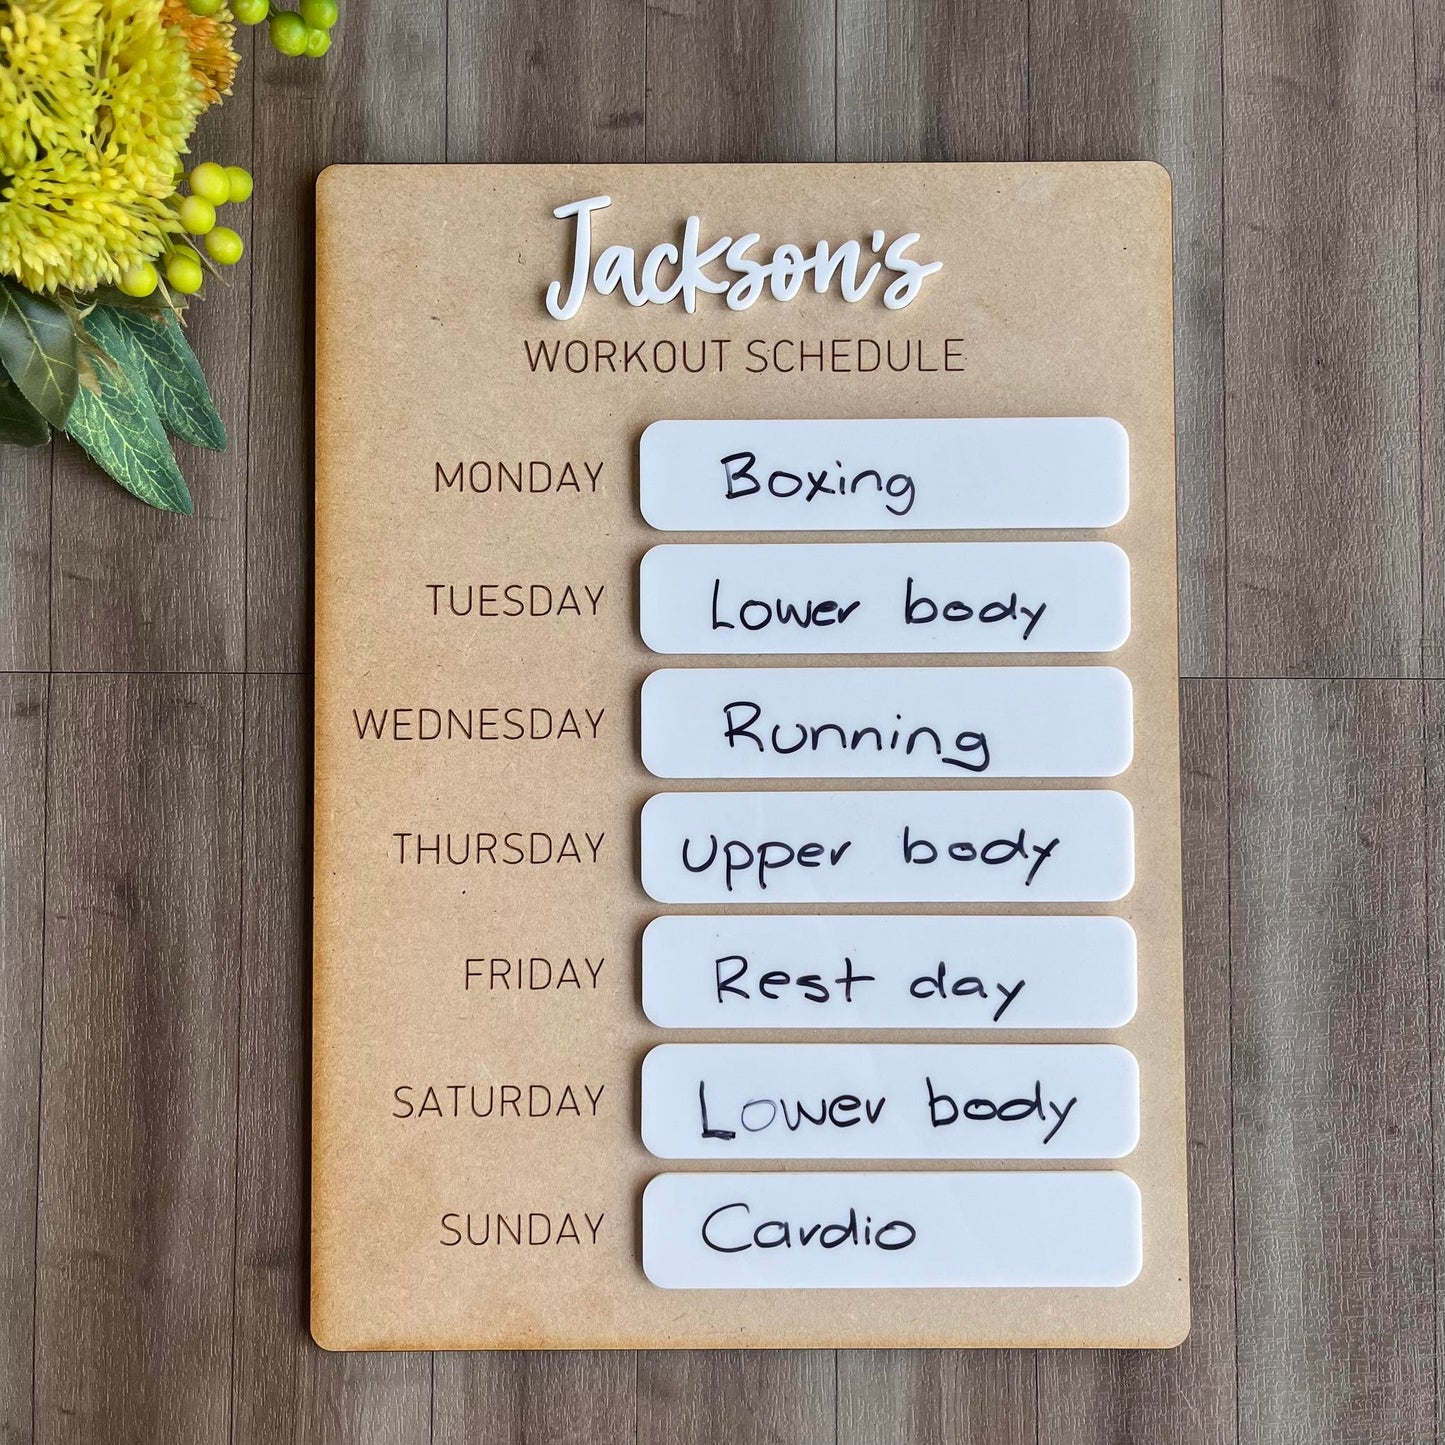 Jackson's
WORKOUT SCHEDULE
MONDAY Boxing
TUESDAY Lower body
WEDNESDAY Running
THURSDAY Upper body
FRIDAY Rest day
SATURDAY Lower body
SUNDAY Cardio